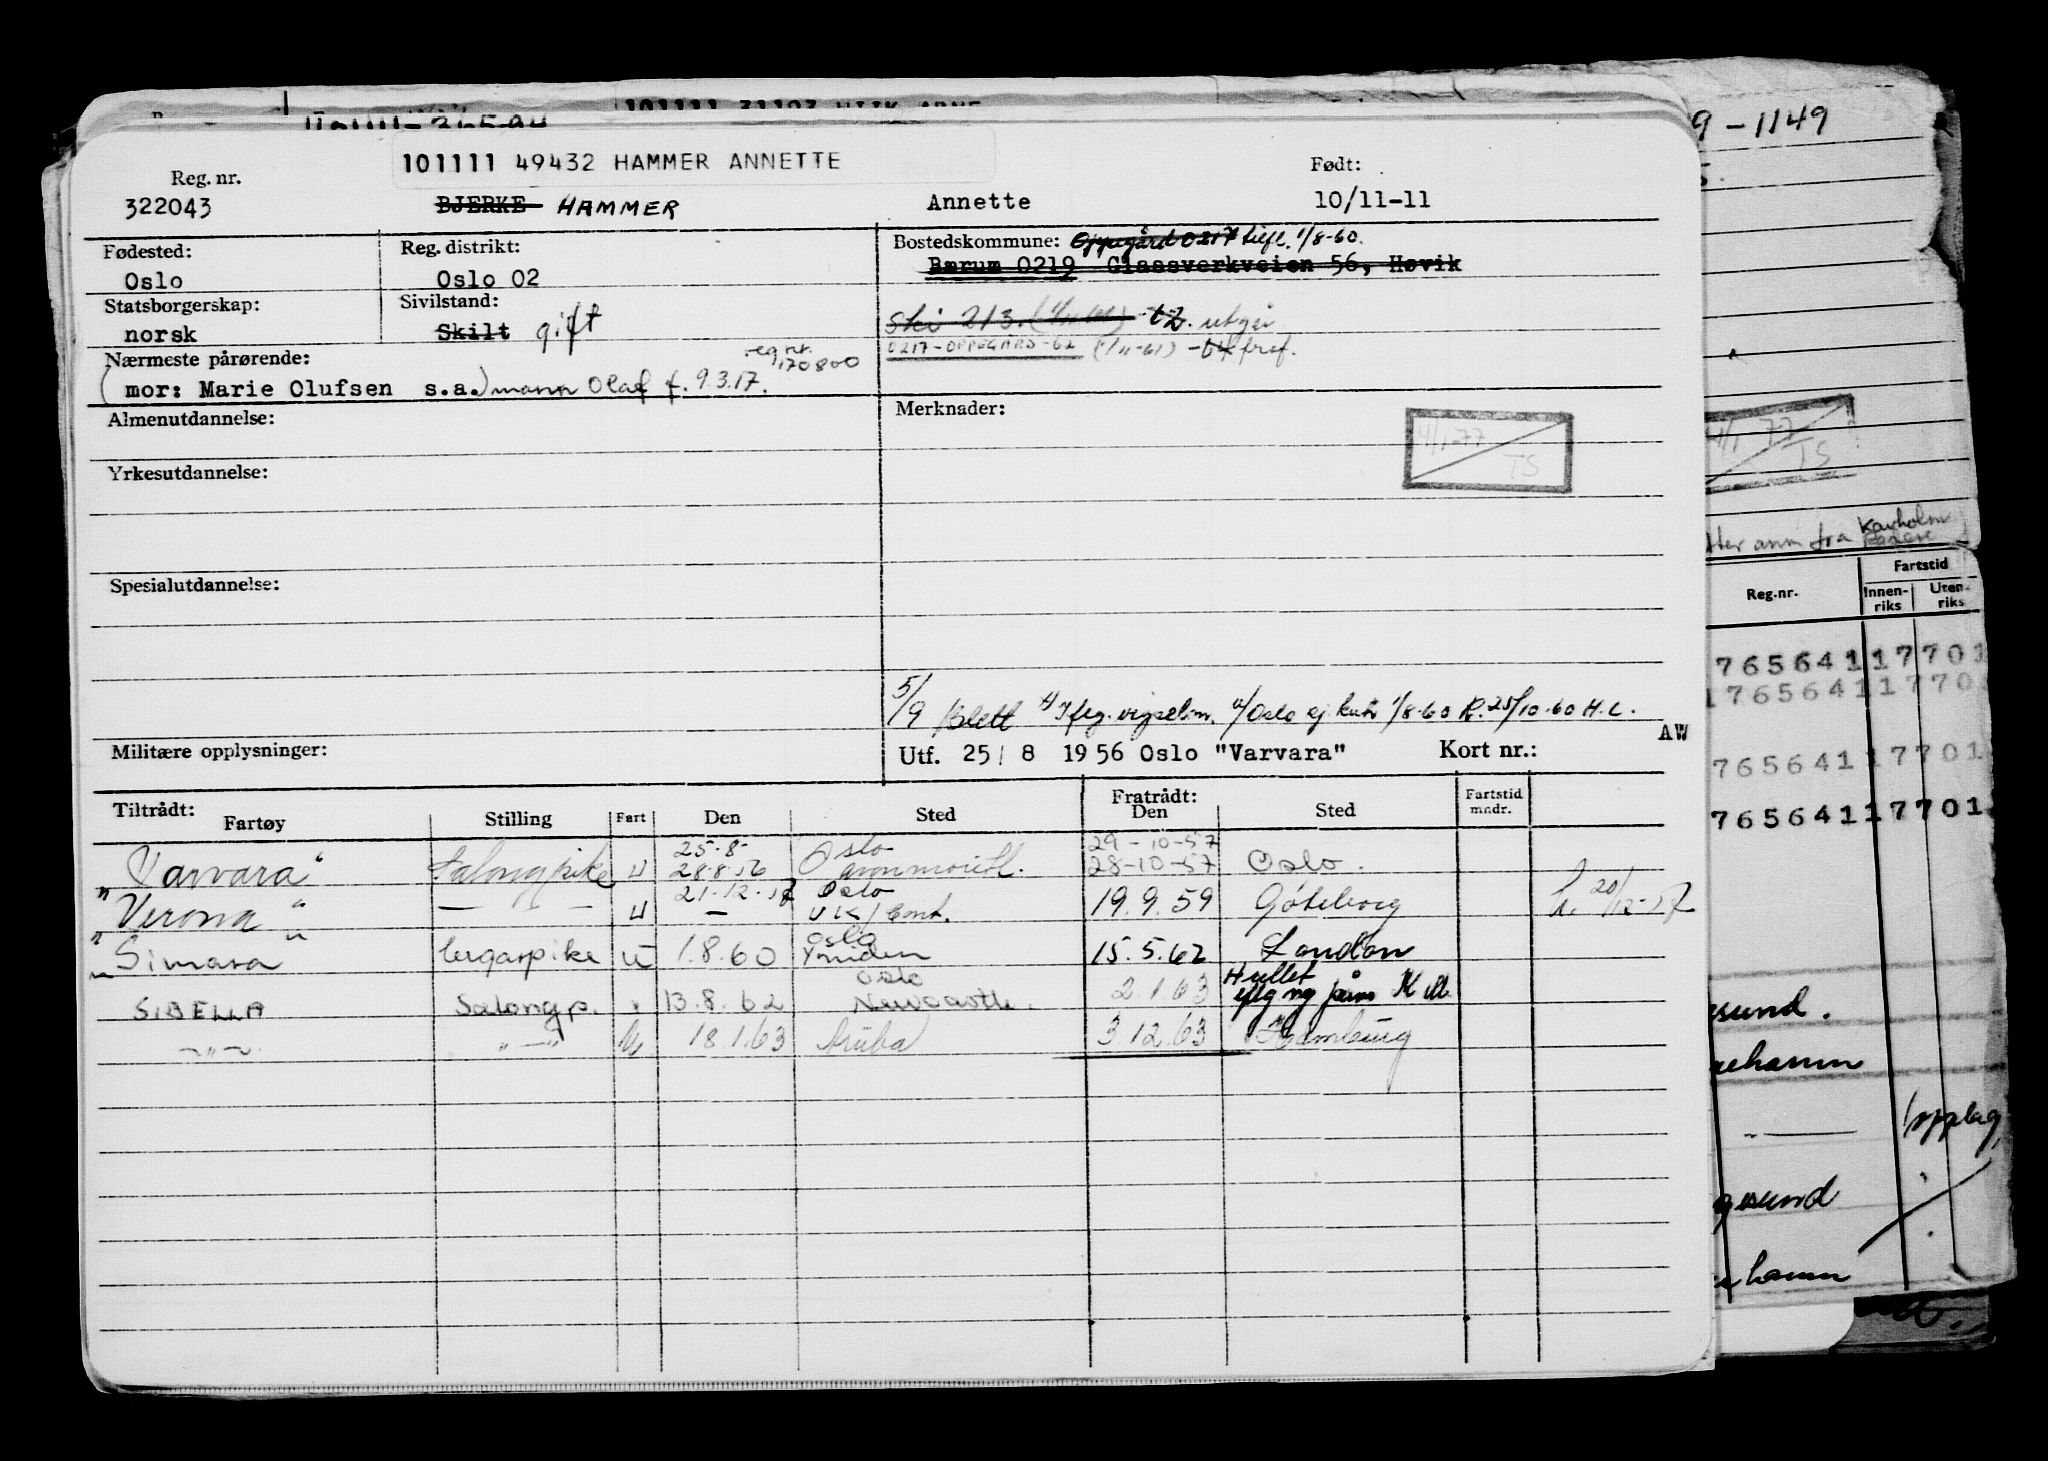 101111 31103 HJIK ARNE
101111 49432 HAMMER ANNETTE
Reg. nr.
Født:
322043
BJERKE HAMMER
Annette
10/11-11
Fødested:
Reg. distrikt:
Bostedskommune: Oppegård 0217 1/8-60.
Oslo
Oslo 02
Bærum 0219 Glassverkveien 56, Høvik
Statsborgerskap:
Sivilstand:
norsk
Skilt gift
Ski 213.
0217-OPPEGÅRD-62 (1/11-61)
Nærmeste pårørende:
reg nr. 170800
(mor: Marie Olufsen s.a.) mann Olaf f. 9.3.17.
Almenutdannelse:
Merknader:
4/1-77
TS
Yrkesutdannelse:
Spesialutdannelse:
5/9 Blett 1/8-60 25/10-60 H.L.
AW
Militære opplysninger:
Utf. 25/ 8 1956 Oslo "Varvara"
Kort nr.:
Tiltrådt:
Fratrådt:
Fartstid mndr.
Fartøy
Stilling
Fart
Den
Sted
Den
Sted
25.8- Oslo 29-10-57
"Varvara" Salongpike U 28.8.56 Avonmouth. 28-10-57 Oslo.
21.12.57 Oslo
"Verona" — " — U — UK/Cont. 19.9.59 Göteborg 20/12-57
Oslo
"Simara" lugarpike U 1.8.60 Ymiden 15.5.62 London
Oslo Hullet
SIBELLA Salongp. " 13.8.62 Newcastle. 2.1.63
—"— "—"— U 18.1.63 Aruba 3.12.63 Hamburg
9-1149
4/1 77
TS
anm fra Karholmen
Fartstid
Reg.nr.
Innenriks
Utenriks
76564117701
76564117701
76564117701
76564117701
sund.
ehamn
opplag
gesund
hamn